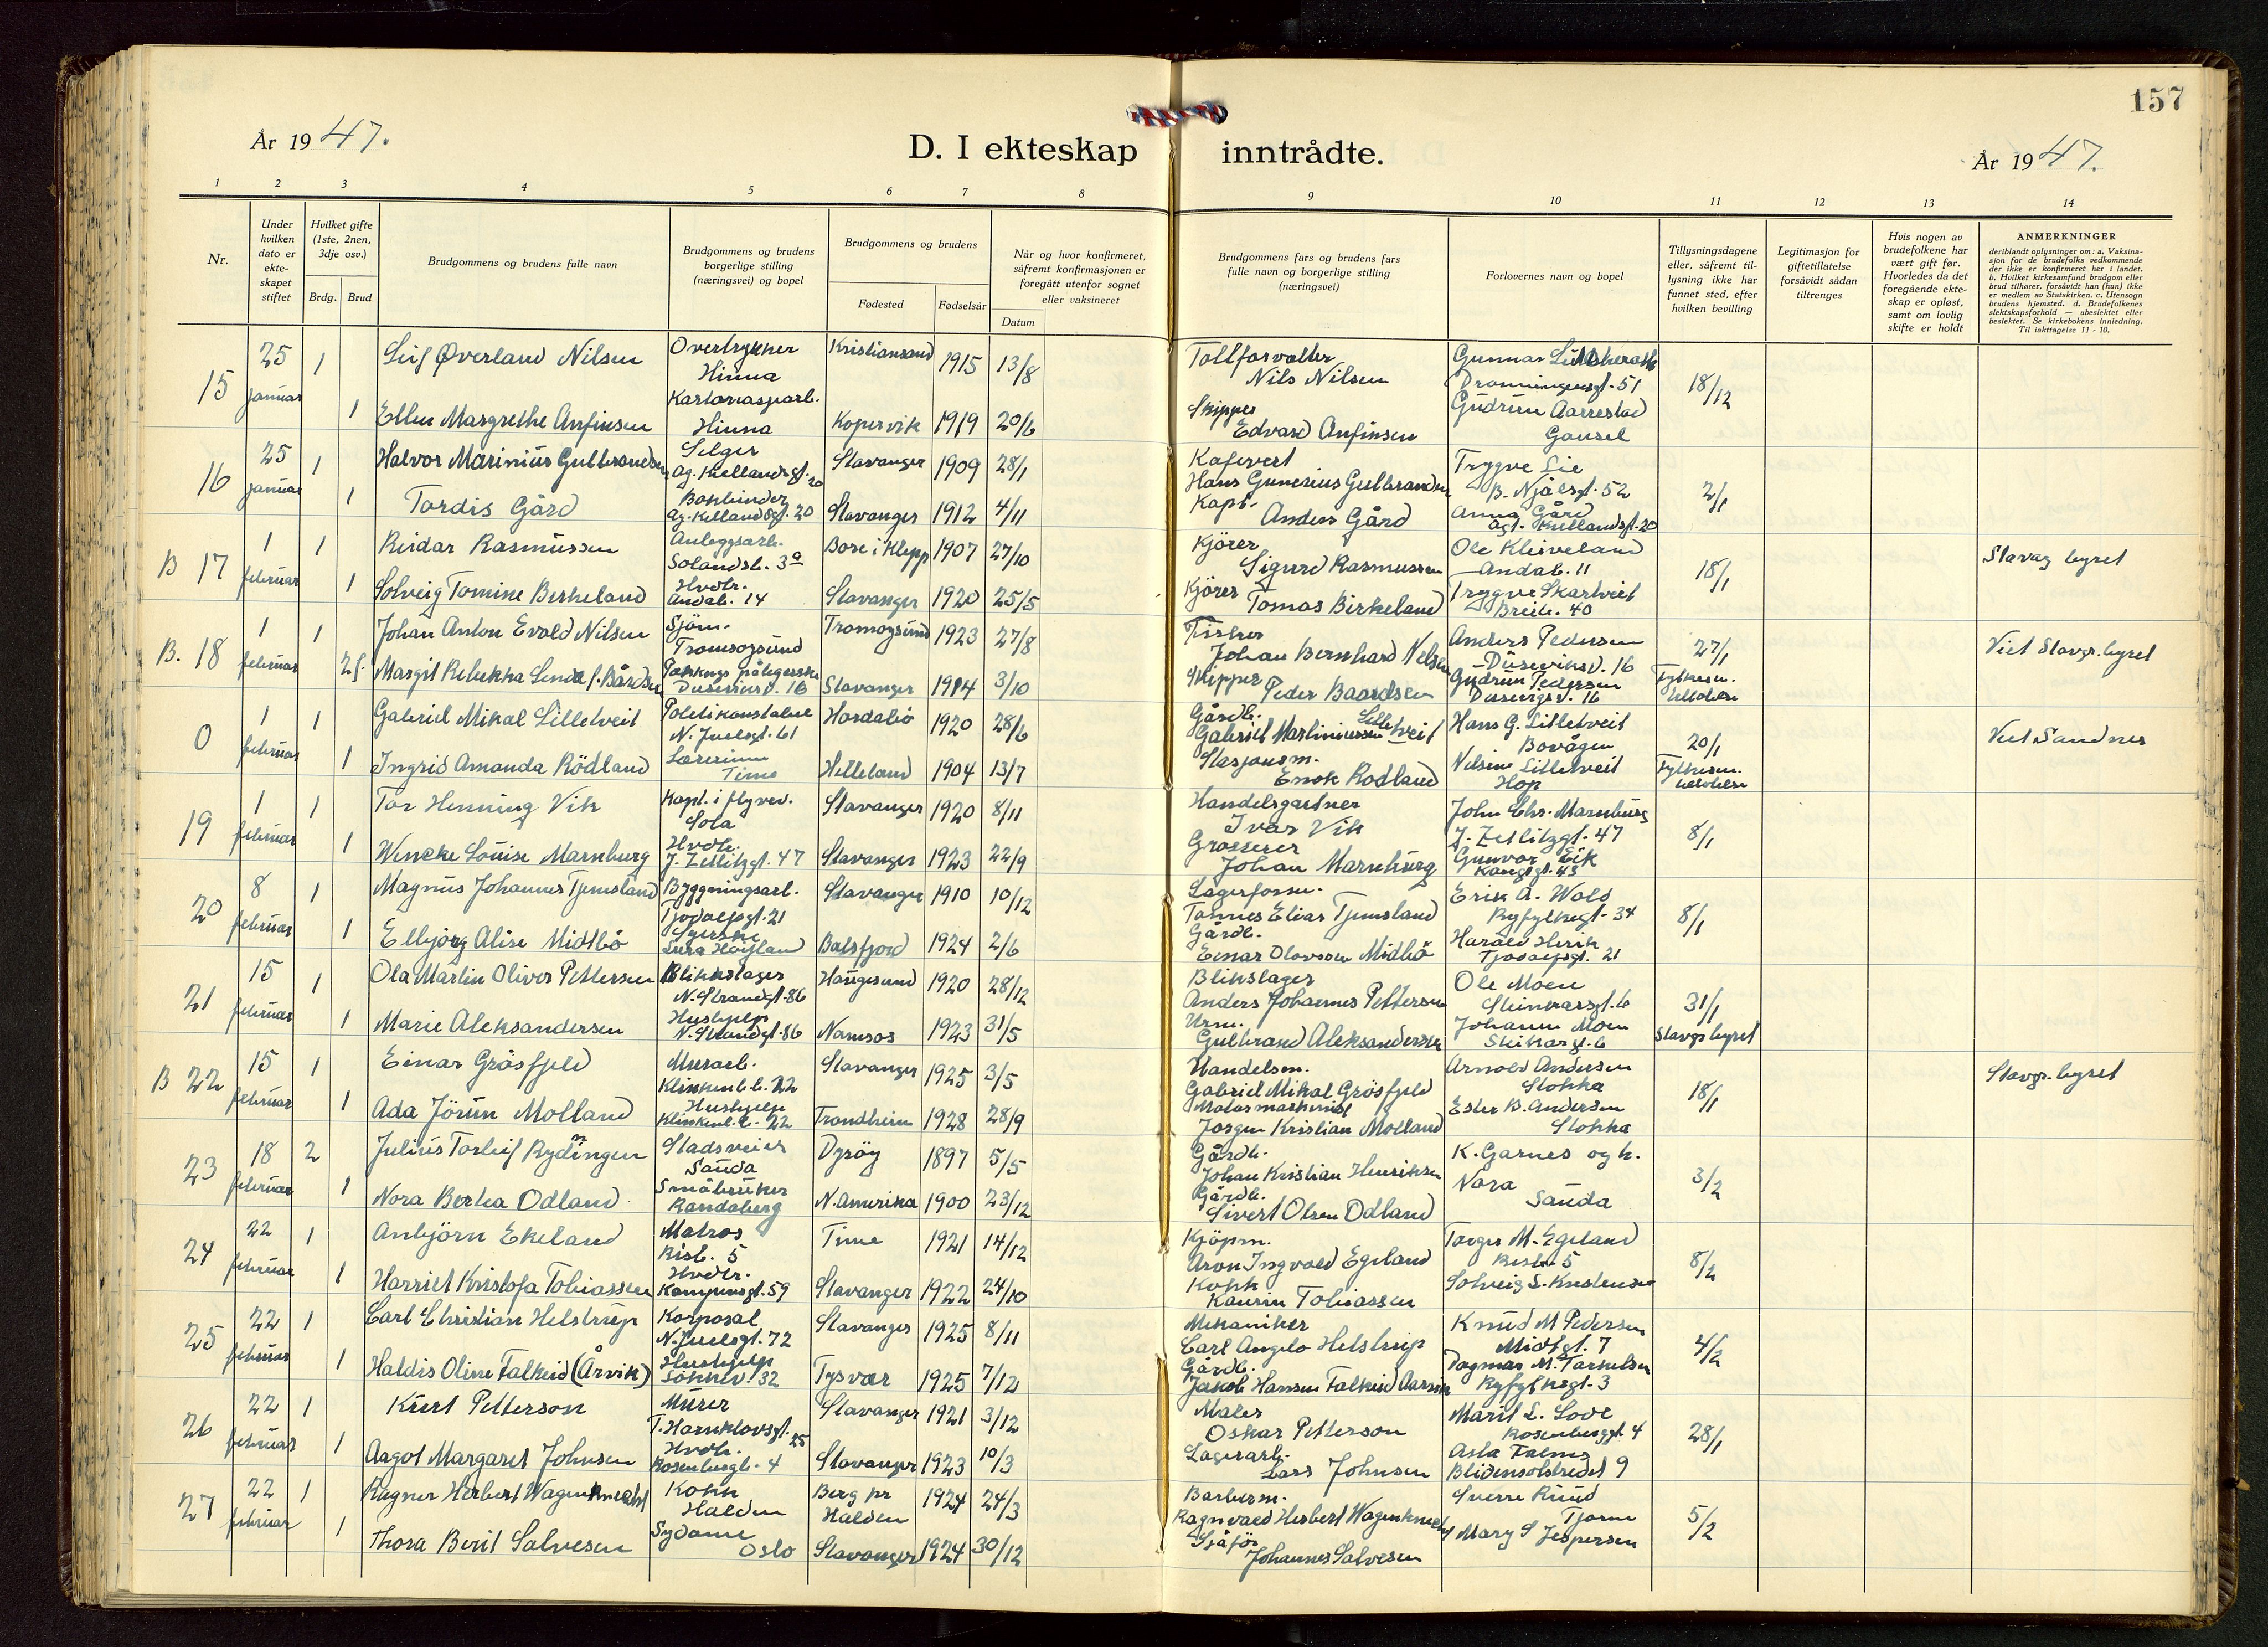 157
År 1947.
D. I ekteskap inntrådte.
År 1947.
1 2 3 4 5 6 7 8 9 10 11 12 13 14
Nr.
Under hvilken dato er ekteskapet stiftet
Hvilket gifte (1ste, 2nen, 3dje osv.)
Brdg. Brud
Brudgommens og brudens fulle navn
Brudgommens og brudens borgerlige stilling (næringsvei) og bopel
Brudgommens og brudens
Fødested Fødselsår
Når og hvor konfirmeret, såfremt konfirmasjonen er foregått utenfor sognet eller vaksineret
Datum
Brudgommens fars og brudens fars fulle navn og borgerlige stilling (næringsvei)
Forlovernes navn og bopel
Tillysningsdagene eller, såfremt tillysning ikke har funnet sted, efter hvilken bevilling
Legitimasjon for giftetillatelse forsåvidt sådan tiltrenges
Hvis nogen av brudefolkene har vært gift før. Hvorledes da det foregående ekteskap er opløst, samt om lovlig skifte er holdt
ANMERKNINGER
deriblandt oplysninger om: a. Vaksinasjon for de brudefolks vedkommende der ikke er konfirmeret her i landet. b. Hvilket kirkesamfund brudgom eller brud tilhører, forsåvidt han (hun) ikke er medlem av Statskirken. c. Utensogn brudens hjemsted. d. Brudefolkenes slektskapsforhold — ubeslektet eller beslektet. Se kirkebokens innledning. Til iakttagelse 11 - 10.
15 25 januar 1 Leif Øverland Nilsen Overtrykker Hinna Kristiansand 1915 13/8 Tollforvalter Nils Nilsen Gunnar Dronningensgt. 51 18/12
1 Ellen Margrethe Anfinsen Hinna Kopervik 1919 20/6 Skipper Edvard Anfinsen Gudrun Aarrestad Gausel
16 25 januar 1 Halvor Marinius Selger Ag. Kiellandsgt. 20 Stavanger 1909 28/1 Kafevert Hans Trygve Lie B. Njålsgt. 52 2/1
1 Tordis Gård Bokbinder Ag. Kiellandsgt. 20 Stavanger 1912 4/11 Kapt. Anders Gård Anna Gård Kiellandsgt. 20
B 17 1 februar 1 Reidar Rasmussen Anleggsarb. Solandsb. 3a Bore i Klepp 1907 27/10 Kjörer Sigurd Rasmussen Ole Kleiveland Andab. 11 18/1 Stavag byret
1 Solveig Tomine Birkeland Hvdtr. Andab. 14 Stavanger 1920 25/5 Kjörer Tomas Birkeland Trygve Skartveit Breib. 40
B. 18 1 februar 1 Johan Anton Evald Nilsen Sjöm. Tromsøysund Tromøysund 1923 27/8 Fisker Johan Bernhard Nilsen Anders Pedersen Duseviksv. 16 27/1 Viet Stavgr. byret
2f. Margit Rebekka Linda f. Bårdsen Duseviksv. 16 Stavanger 1914 3/10 Skipper Peder Baardsen Gudrun Pedersen Duseviksv. 16
0 1 februar 1 Gabriel Mikal Lilletveit Politikonstabel N. Juelsgt. 61 Hordabö 1920 28/6 Gårdb. Gabriel Martiniussen Lilletveit Hans G. Lilletveit Bovågen 20/1 Viet Sandnes
1 Ingrid Amanda Rödland Lærerinne Time Helleland 1904 13/7 Stasjonsm. Enok Rodland Nilsine Lilletveit Hop
19 1 februar 1 Tor Henning Vik Kapt. i flyvev. Sola Stavanger 1920 8/11 Handelsgartner Ivar Vik John Chr. Marnburg J. Zetlitzgt. 47 8/1
1 Wencke Louise Marnburg Hvdtr. J. Zetlitzgt. 47 Stavanger 1923 22/9 Grosserer Johan Marnburg Gunvor Eik Kongsgt. 43
20 8 februar 1 Magnus Johannes Tjemsland Byggningsarb. Tjodolfsgt. 21 Stavanger 1910 10/12 Lagerform. Tønnes Elias Tjemsland Erik A. Wold Ryfylkegt. 34 8/1
1 Elbjørg Alise Midtbö Syerske Balsfjord 1924 2/6 Gårdb. Einar Olavssen Midtbö Harald Herik Tjodolfsgt. 21
21 15 februar 1 Ola Martin Oliver Pettersen Blikkslager N. Strandgt. 86 Haugesund 1920 28/12 Blikslager Anders Johannes Pettersen Ole Moen Steinkarsgt. 6 31/1
1 Marie Aleksandersen Hushjelp N. Strandgt. 86 Namsos 1923 31/5 Urm. Gulbrand Aleksandersen Johanne Moen Steinkarsgt. 6 Stavgr byret
B 22 15 februar 1 Einar Grösfjeld Murarb. Klinkenb.b. 22 Stavanger 1925 3/5 Handelsm. Gabriel Mikal Grösfjeld Arnold Andersen Stokka 18/1 Stavgr. byret
1 Ada Jörun Molland Hushjelp Klinkenb.b. 22 Trondheim 1928 28/9 Motormaskinist Jørgen Kristian Molland Ester B. Andersen Stokka
23 18 februar 2 Julius Torleif Rydningen Stadsveier Sauda Dyröy 1897 5/5 Gårdb. Johan Kristian Henriksen K. Garnes og h. 3/2
1 Nora Bertea Odland Småbruker Randaberg N. Amerika 1900 23/12 Gårdb. Sivert Olsen Odland Nora Sauda
24 22 februar 1 Anbjörn Ekeland Matros Risb. 5 Time 1921 14/12 Kjöpm. Aron Ingvald Egeland Torger M. Egeland Risb. 5 8/2
1 Harriet Kristofa Tobiassen Hvdtr. Kampensgt. 59 Stavanger 1922 24/10 Kokk Kaurin Tobiassen Solveig L. Kristensen
25 22 februar 1 Carl Christian Helstrup Korporal N. Juelsgt. 72 Stavanger 1925 8/11 Mekaniker Carl Angelo Helstrup Knud M Pedersen Midtgt. 7 4/2
1 Haldis Oline Falkeid (Årvik) Hushjelp Lökkev. 32 Tysvær 1925 7/12 Gårdb. Jakob Hansen Falkeid Aarvik Dagmar M. Torkelsen Ryfylkegt. 3
26 22 februar 1 Kurt Petterson Murer T. Hornklovsgt. 25 Stavanger 1921 3/12 Maler Oskar Petterson Marit L. Love Rosenberggt. 4 28/1
1 Aagot Margaret Johnsen Hvdtr. Rosenbergb. 4 Stavanger 1923 10/3 Lagerarb. Lars Johnsen Asta Falnes Blidensolstredet 9
27 22 februar 1 Ragner Herbert Wagenknecht Kokk Halden Berg pr Halden 1924 24/3 Barberm. Ragnvald Herbert Wagenknecht Sverre Ruud Tjorne 5/2
1 Thora Berit Salvesen Sydame Oslo Stavanger 1924 30/12 Sjåför Johannes Salvesen Mary S Jespersen